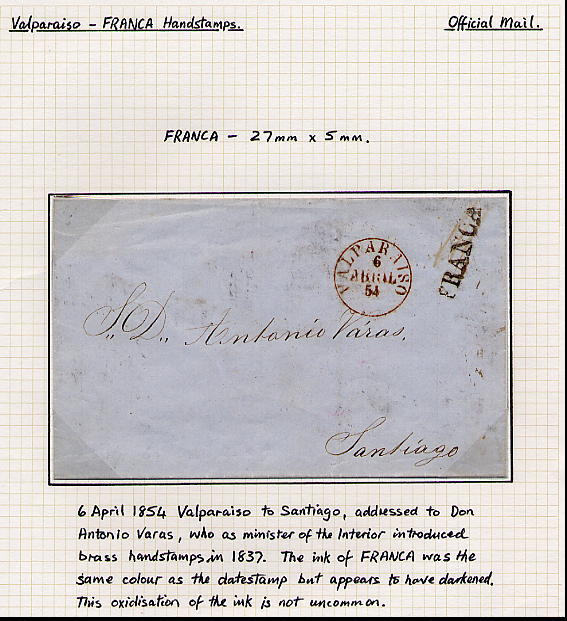 Valparaiso – FRANCA Handstamps.
Official Mail.
FRANCA – 27mm x 5mm.
FRANCA
VALPARAISO
6
ABRIL
54
S. D. Antonio Varas.
Santiago
6 April 1854 Valparaiso to Santiago, addressed to Don
Antonio Varas, who as minister of the Interior introduced
brass handstamps in 1837. The ink of FRANCA was the
same colour as the datestamp but appears to have darkened.
This oxidisation of the ink is not uncommon.